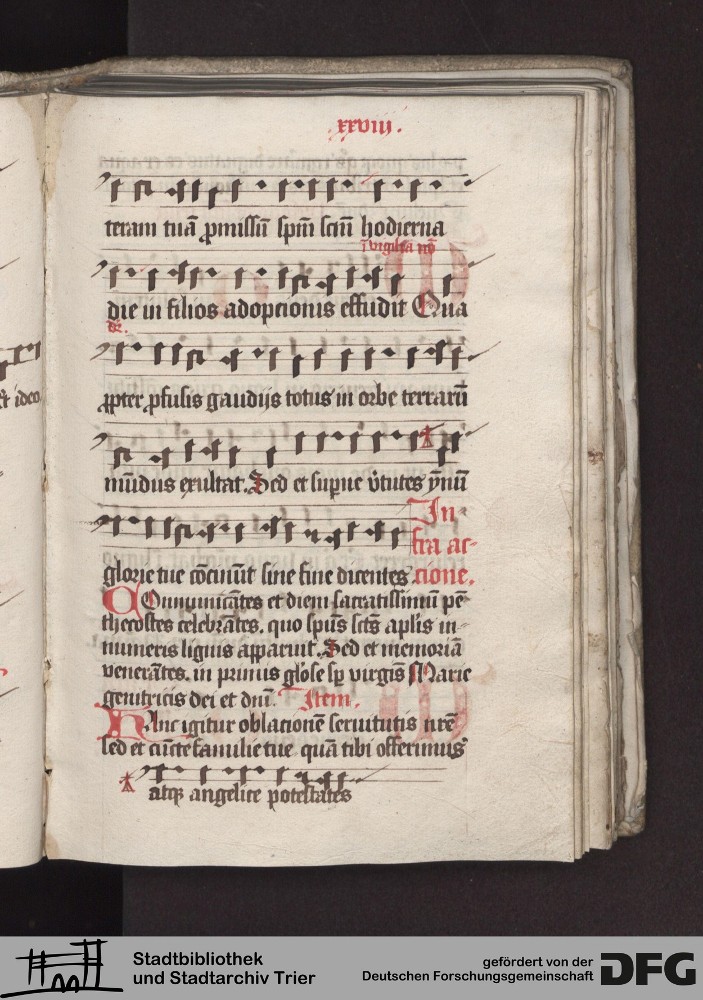 xxviij.
teram tuā ꝓmissū spm̄ scm̄ hodierna
ī vigilia nō
die in filios adopcionis effudit Qua
dr̄.
ꝓpter ꝓfusis gaudijs totus in orbe terrarū
mūdus exultat. Sed et supne v̄tutes ymnū
glorie tue cōcinūt sine fine dicentes.
In
fra ac-
cione.
Cōmunicātes et diem sacratissimū pē
thecostes celebrātes. quo spūs scts aplis in-
numeris liguis apparuit. Sed et memoriā
venerātes. in primis gl'ose sp virgīs Marie
genitricis dei et dni. Item.
Hanc igitur oblacionē seruitutis nrē
sed et cūcte familie tue quā tibi offerimus
atqꝫ angelice potestates
Et ideo
Stadtbibliothek
und Stadtarchiv Trier
gefördert von der
Deutschen Forschungsgemeinschaft
DFG